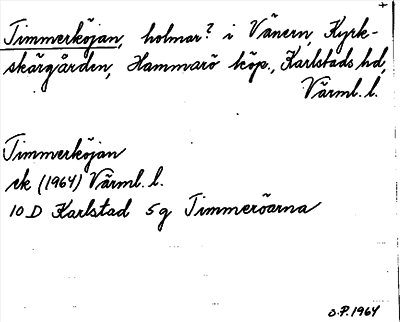 +
Timmerköjan, holmar? i Vänern, Kyrk-
skärgården, Hammarö köp., Karlstads hd,
Värml. l.
Timmerköjan
ek (1964) Värml. l.
10 D Karlstad 5g Timmeröarna
O.P. 1964